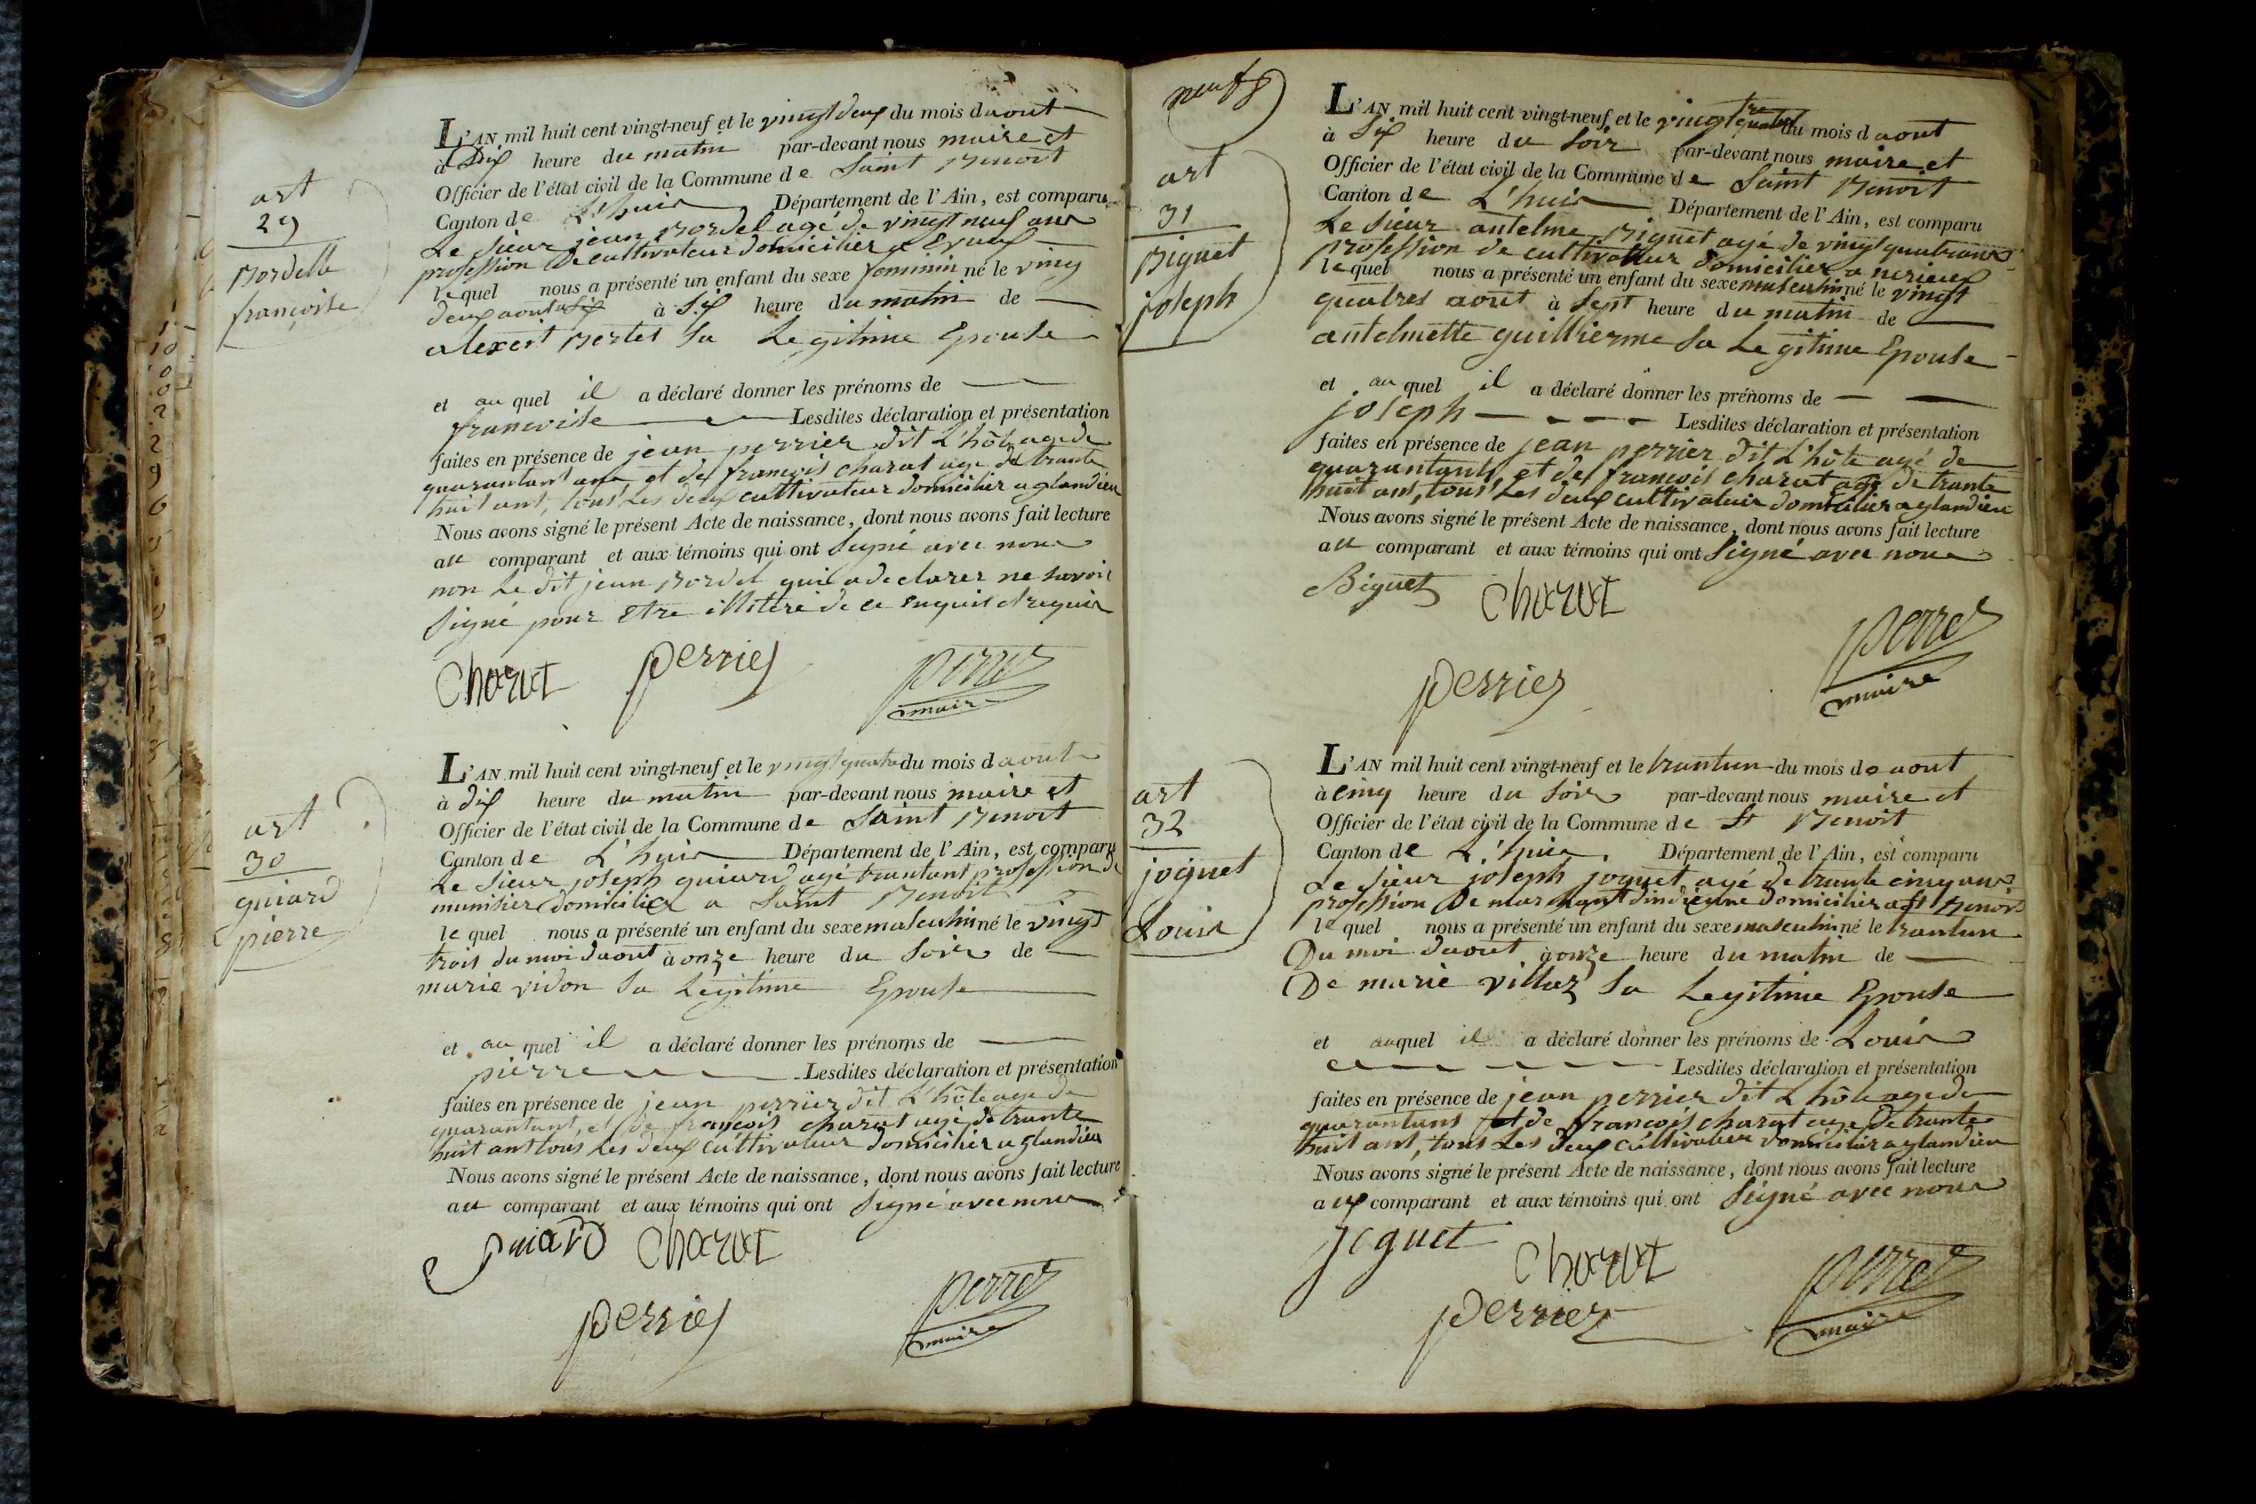 art
29
Bordelle
françoise
L'AN mil huit cent vingt-neuf et le vingt deux du mois d aout
à Dix heure du matin par-devant nous maire et
Officier de l'état civil de la Commune de Saint Benoit
Canton de L'huis Département de l'Ain, est comparu
Le sieur jean Bordel agé de vingt neuf ans
profession De cultivateur domicilier a Evieux
lequel nous a présenté un enfant du sexe feminin né le ving
deux aout à six heure du matin de
alexeit Bertet sa Legitime Epouse
et au quel il a déclaré donner les prénoms de
francoise Lesdites déclaration et présentation
faites en présence de jean perrier dit L'hôte age de
quarantant ans et de françois charat age de trante
huit ant, tous Les deux cultivateur domicilier a glandieu
Nous avons signé le présent Acte de naissance, dont nous avons fait lecture
au comparant et aux témoins qui ont Signé avec nous
non Le dit jean Bordel qui a declarer ne savoir
signé pour Etre illiteré de ce enquis et requis
Charat perrier perret
maire
art
30
guiard
pierre
L'AN mil huit cent vingt-neuf et le vingt quatre du mois d aout
à dix heure du matin par-devant nous maire et
Officier de l'état civil de la Commune de Saint Benoit
Canton de L'huis Département de l'Ain, est comparu
Le sieur joseph guiard age trantant profession de
munisier domicilier a Saint Benoit
lequel nous a présenté un enfant du sexe masculin né le vingt
trois du moi daout à onze heure du soir de
marie vidon sa Legitime Epouse
et au quel il a déclaré donner les prénoms de
pierre Lesdites déclaration et présentation
faites en présence de jean perrier dit L'hôte age de
quarantant, et de françois charat agé de trante
huit ant tous Les deux cultivateur domicilier a glandieu
Nous avons signé le présent Acte de naissance, dont nous avons fait lecture
au comparant et aux témoins qui ont Signé avec nous
guiard Charat
perrier perret
maire
neuf 8
art
31
Biguet
joseph
L'AN mil huit cent vingt-neuf et le vingt quatre du mois d aout
à Six heure du soir par-devant nous maire et
Officier de l'état civil de la Commune de Saint Benoit
Canton de L'huis Département de l'Ain, est comparu
Le sieur antelme Biguet agé de vingt quatrans
profession de cultivateur domicilier a nerieux
lequel nous a présenté un enfant du sexe masculin né le vingt
quatres aout à Sept heure du matin de
antelmette guillierme sa Legitime Epouse
et au quel il a déclaré donner les prénoms de
joseph Lesdites déclaration et présentation
faites en présence de jean perrier dit L'hôte agé de
quarantants et de françois charat age de trante
huit ant, tous Les deux cultivateur domicilier a glandieu
Nous avons signé le présent Acte de naissance, dont nous avons fait lecture
au comparant et aux témoins qui ont Signé avec nous
Biguet Charat
perret
perrier maire
art
32
joguet
Louis
L'AN mil huit cent vingt-neuf et le trantun du mois de aout
à cinq heure du soir par-devant nous maire et
Officier de l'état civil de la Commune de St Benoit
Canton de L'huis. Département de l'Ain, est comparu
Le sieur joseph joguet agé de trante cinq ans
profession De marchant dindienne domicilier a St Benoit
lequel nous a présenté un enfant du sexe masculin né le trantun
Du moi daout à onze heure du matin de
De marie villaz sa Legitime Epouse
et auquel il a déclaré donner les prénoms de Louis
Lesdites déclaration et présentation
faites en présence de jean perrier dit L'hôte age de
quarantans et de françois charat age de trante
huit ant, tous Les deux cultivateur domicilier a glandieu
Nous avons signé le présent Acte de naissance, dont nous avons fait lecture
aux comparant et aux témoins qui ont Signé avec nous
Joguet
Charat perret
perrier maire